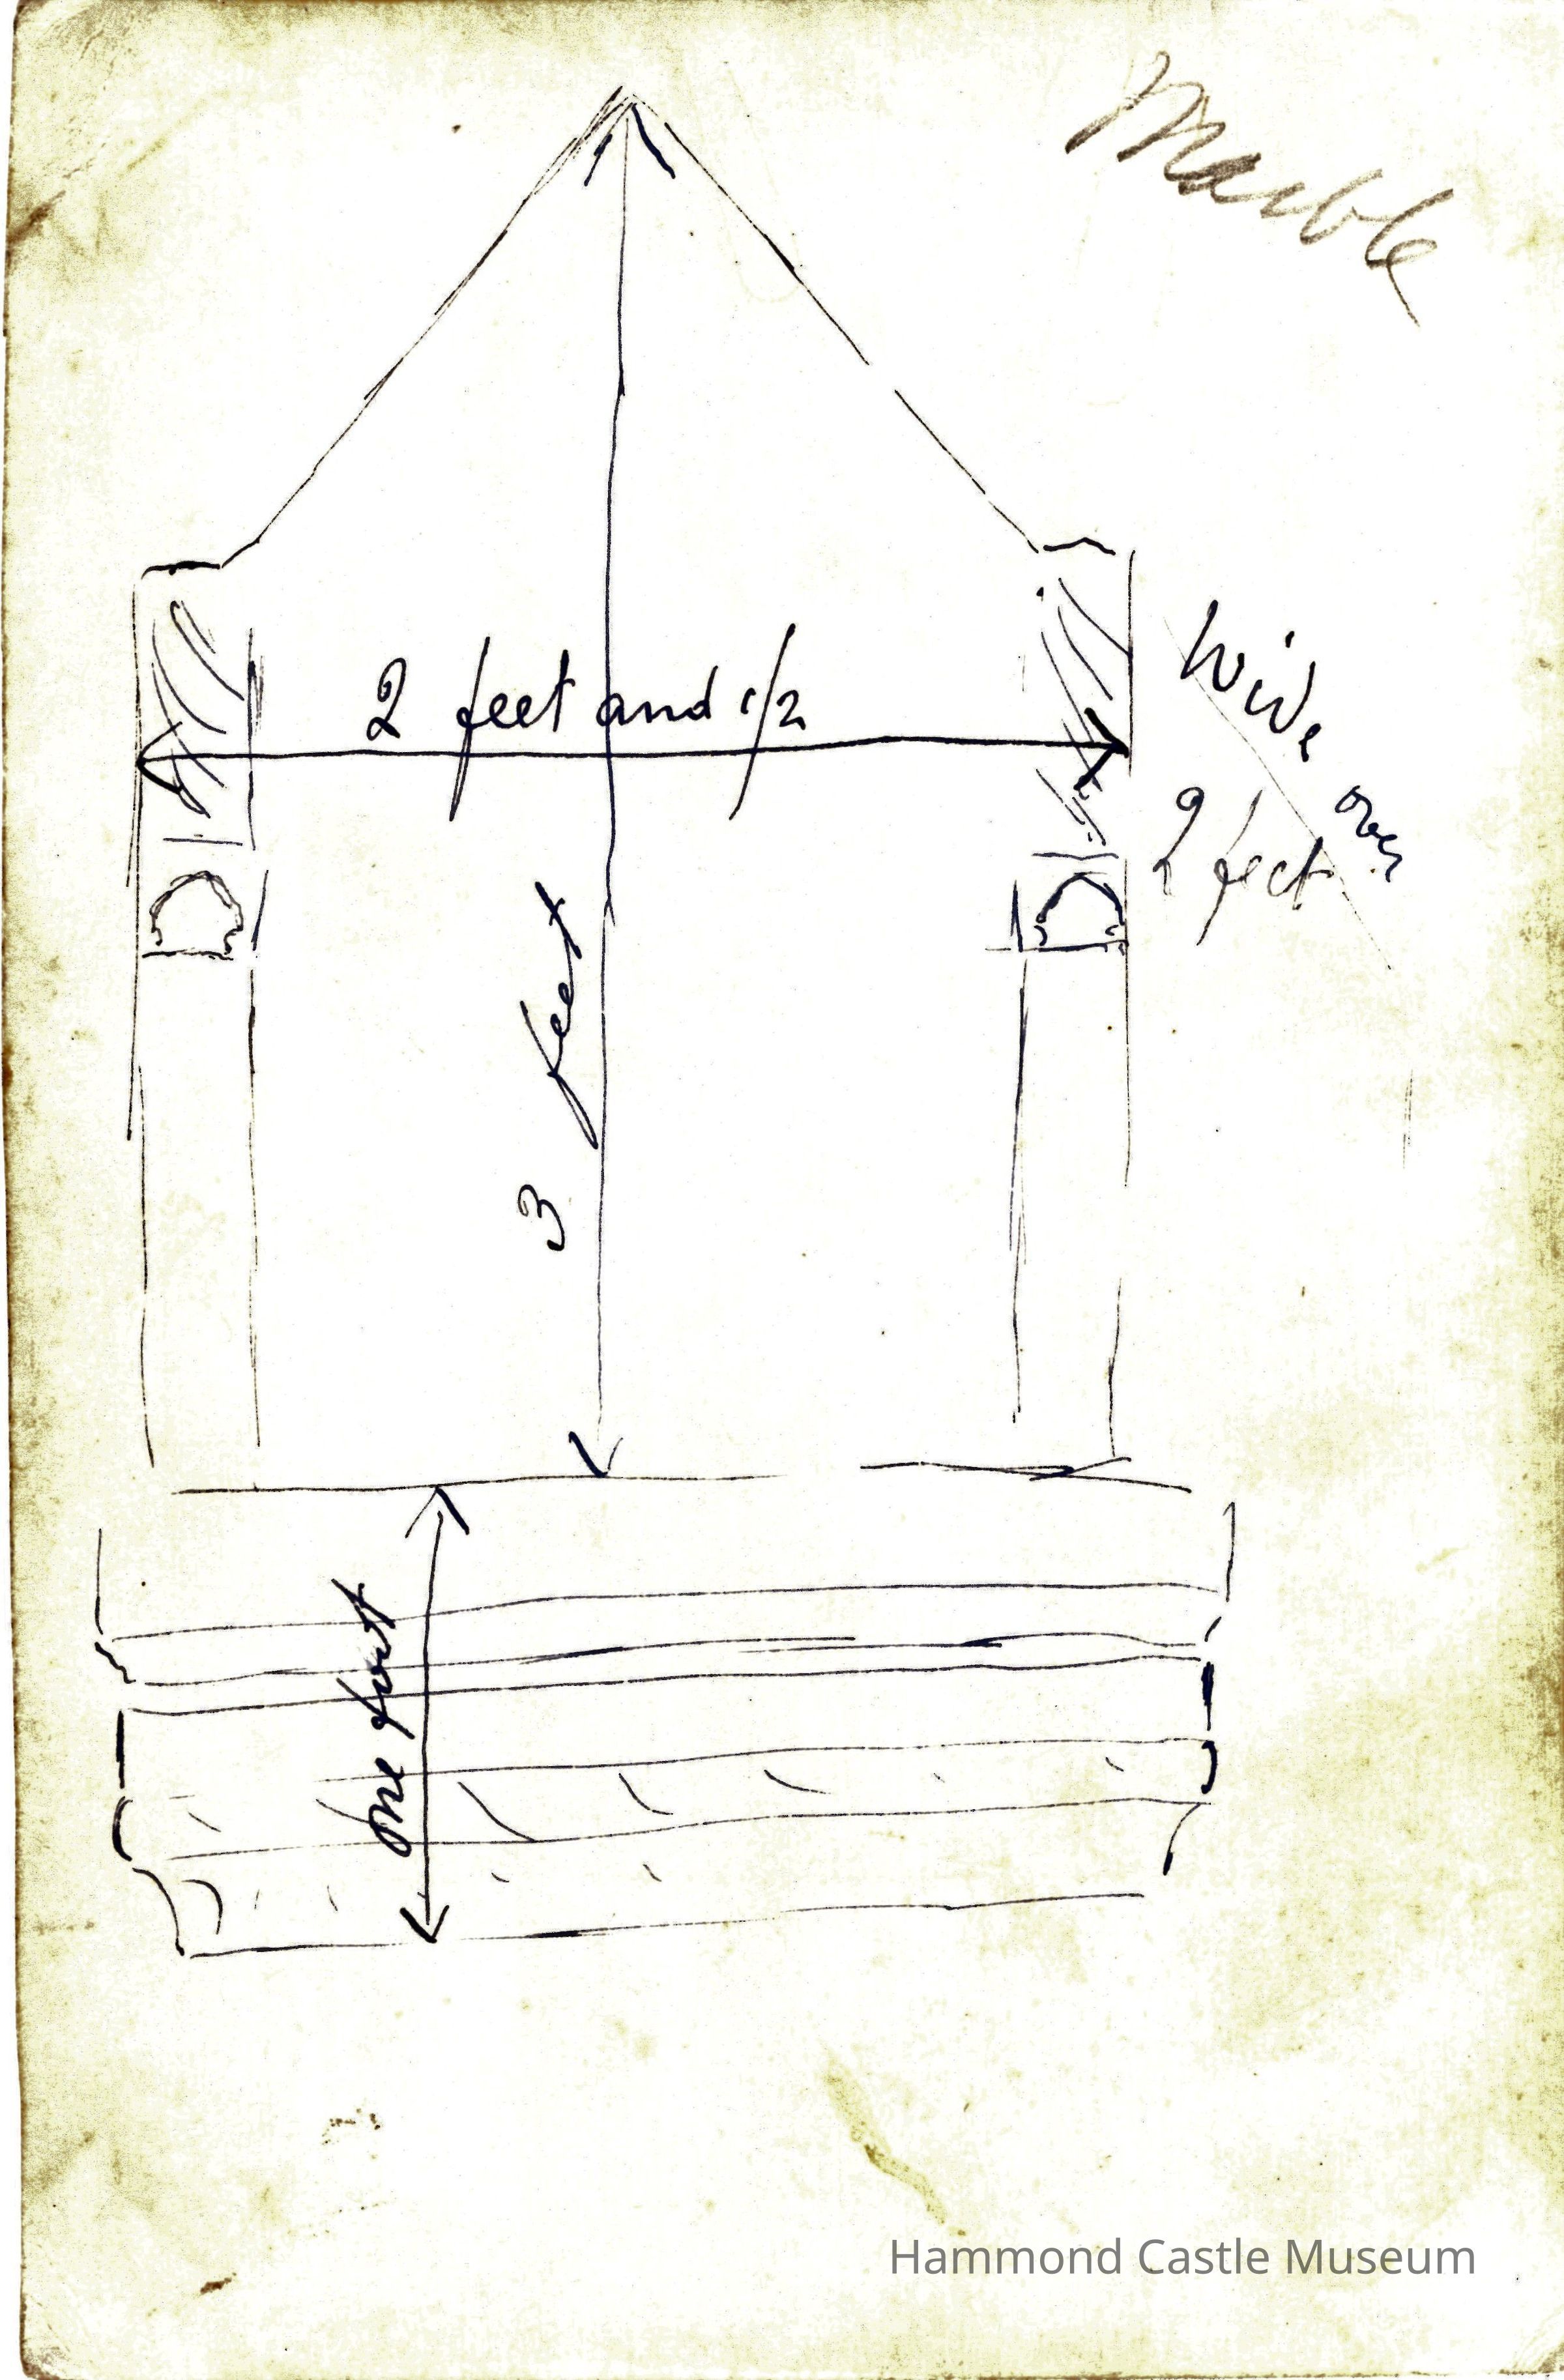 Marble
2 feet and 1/2
wide over
2 feet
3 feet
one foot
Hammond Castle Museum